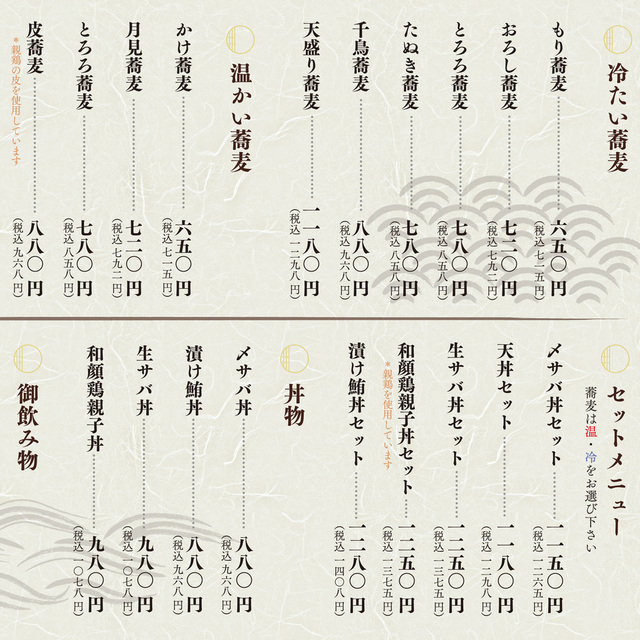 冷たい蕎麦
もり蕎麦 六五〇円
(税込 七一五円)
おろし蕎麦 七二〇円
(税込 七九二円)
とろろ蕎麦 七八〇円
(税込 八五八円)
たぬき蕎麦 七八〇円
(税込 八五八円)
千鳥蕎麦 八八〇円
(税込 九六八円)
天盛り蕎麦 一一八〇円
(税込 一二九八円)
温かい蕎麦
かけ蕎麦 六五〇円
(税込 七一五円)
月見蕎麦 七二〇円
(税込 七九二円)
とろろ蕎麦 七八〇円
(税込 八五八円)
皮蕎麦 八八〇円
(税込 九六八円)
*親鶏の皮を使用しています
セットメニュー
蕎麦は温・冷をお選び下さい
〆サバ丼セット 一一五〇円
(税込 一二六五円)
天丼セット 一一八〇円
(税込 一二九八円)
生サバ丼セット 一二五〇円
(税込 一三七五円)
和顔鶏親子丼セット 一二五〇円
(税込 一三七五円)
*親鶏を使用しています
漬け鮪丼セット 一二八〇円
(税込 一四〇八円)
丼物
〆サバ丼 八八〇円
(税込 九六八円)
漬け鮪丼 八八〇円
(税込 九六八円)
生サバ丼 九八〇円
(税込 一〇七八円)
和顔鶏親子丼 九八〇円
(税込 一〇七八円)
御飲み物